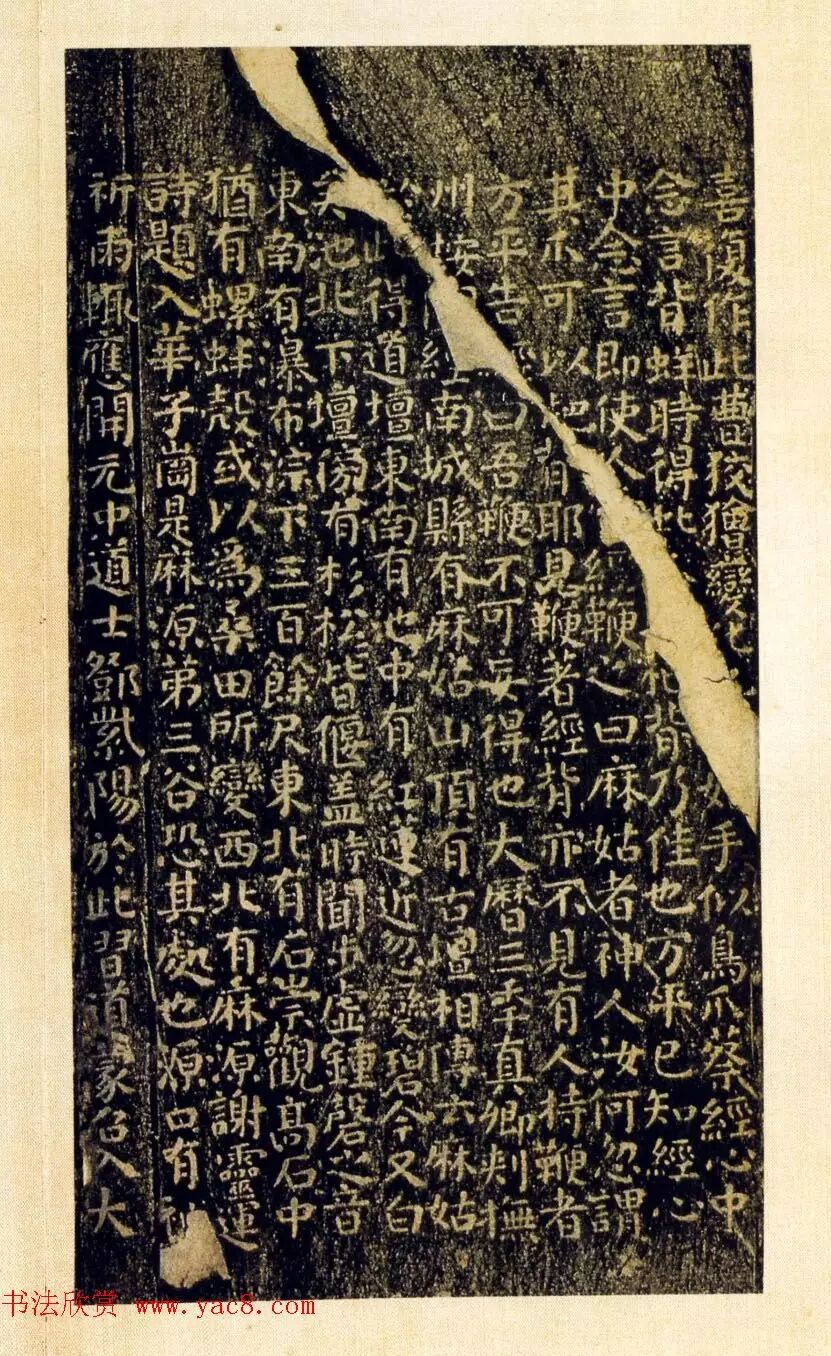 喜復作此曹狡獪變化 手似鳥爪蔡經心中
念言背蛘時得此 爬背乃佳也方平已知經心
中念言即使人 經鞭之曰麻姑者神人汝何忽謂
其爪可以爬背耶見鞭著經背亦不見有人持鞭者
方平告經曰吾鞭不可妄得也大曆三年真卿刺撫
州按 經南城縣有麻姑山頂有古壇相傳云麻姑
於此得道壇東南有池中有紅蓮近忽變碧今又白
矣池北下壇傍有杉松皆偃盖時聞步虛鍾磬之音
東南有瀑布淙下三百餘尺東北有石崇觀高石中
猶有螺蚌殼或以為桑田所變西北有麻源謝靈運
詩題入華子崗是麻源第三谷恐其處也源口有神
祈雨輒應開元中道士鄧紫陽於此習道蒙召入大
书法欣赏 www.yac8.com